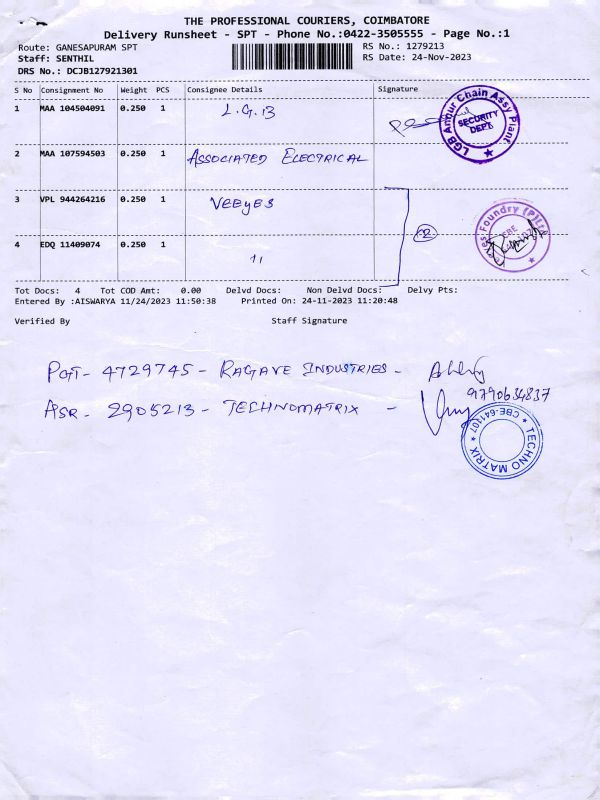 THE PROFESSIONAL COURIERS, COIMBATORE
Delivery Runsheet - SPT - Phone No.:0422-3505555 - Page No.:1
Route: GANESAPURAM SPT RS No.: 1279213
Staff: SENTHIL RS Date: 24-Nov-2023
DRS No.: DCJB127921301
S No Consignment No Weight PCS Consignee Details Signature
1 MAA 104504091 0.250 1 L.G.B
LGB Annur Chain Assy Plant
SECURITY
DEPT.
2 MAA 107594503 0.250 1 ASSOCIATED ELECTRICAL
3 VPL 944264216 0.250 1 VEEYES
2
Foundry (P) Ltd
CBE
4 EDQ 11409074 0.250 1 11
Tot Docs: 4 Tot COD Amt: 0.00 Delvd Docs: Non Delvd Docs: Delvy Pts:
Entered By :AISWARYA 11/24/2023 11:50:38 Printed On: 24-11-2023 11:20:48
Verified By Staff Signature
PGT- 4729745 - RAGAVE INDUSTRIES -
9790634837
ASR - 2905213 - TECHNOMATRIX -
TECHNO MATRIX * CBE-641107 *